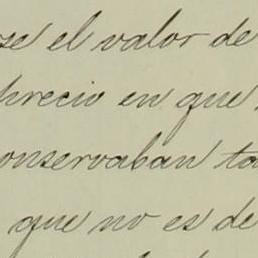 se el valor de
precio en que
onservaban ta
que no es de